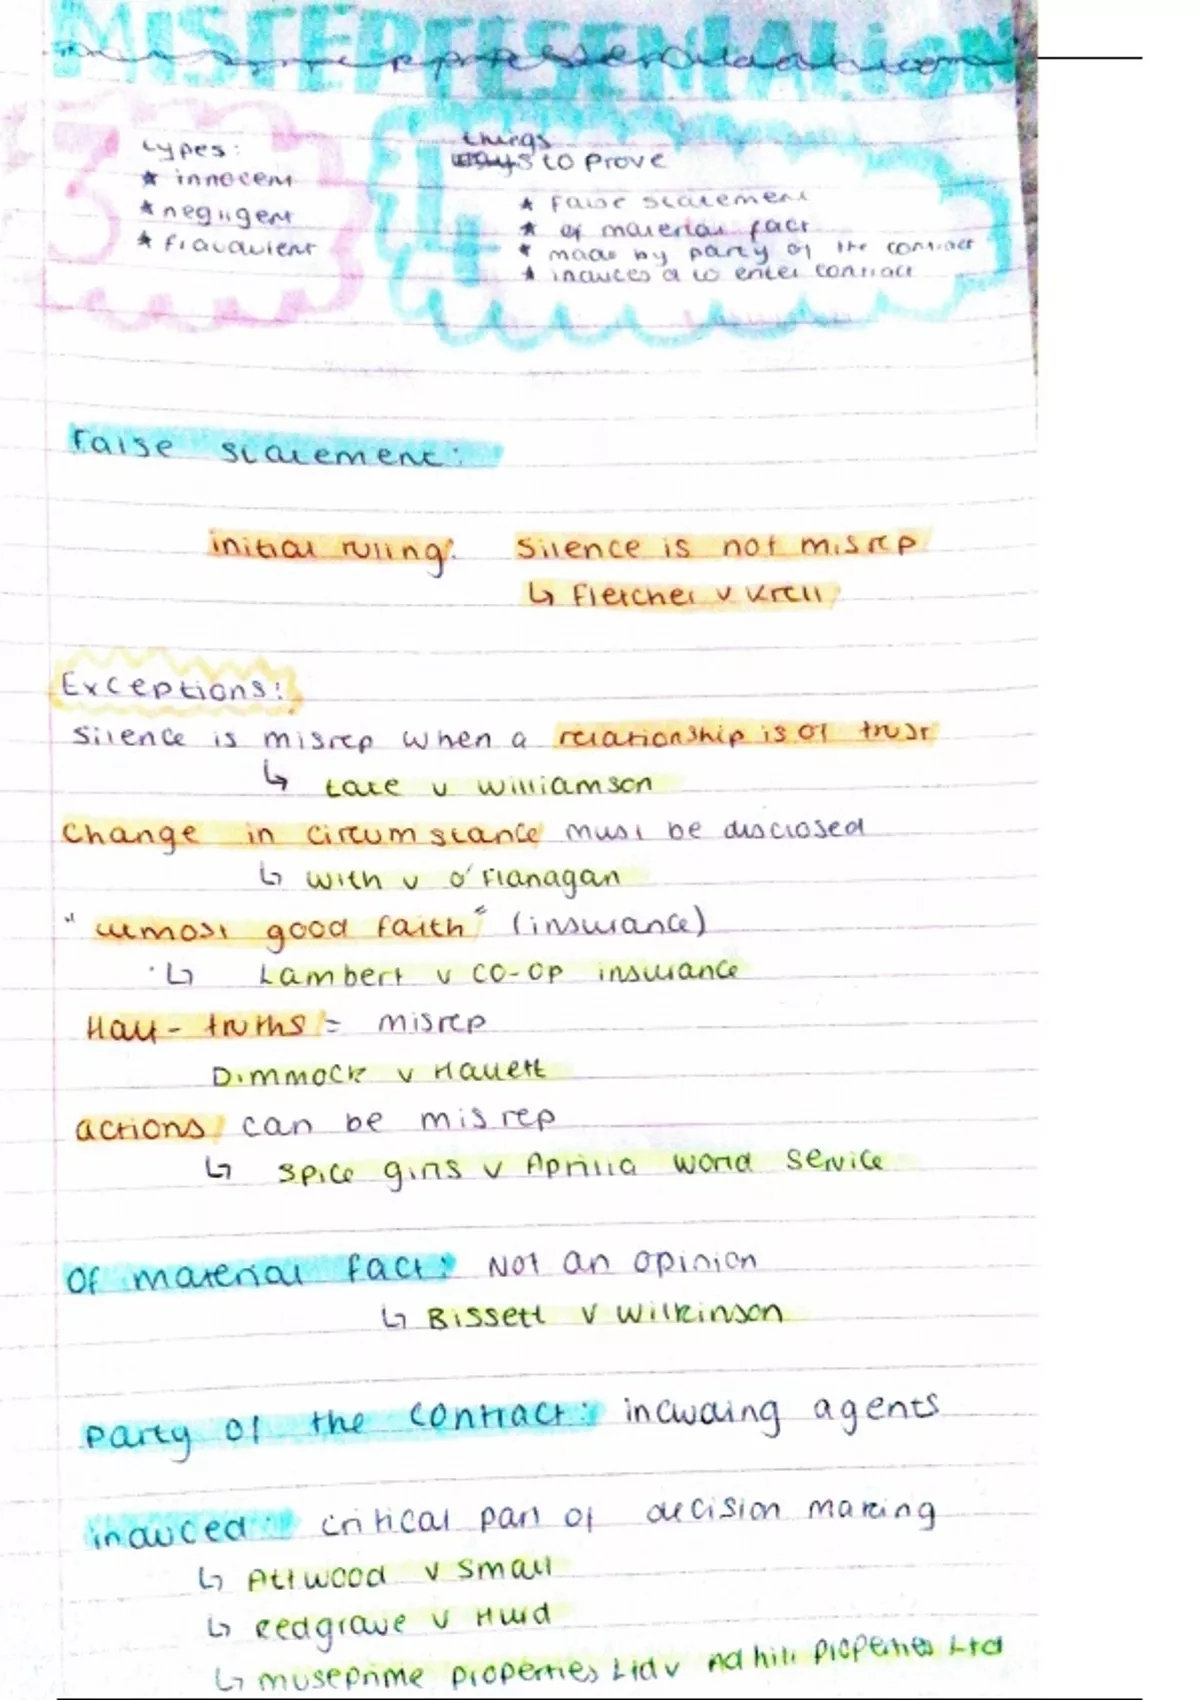 MISrEPrESENtAtioN
misrepresentation
3
types:
★ innocent
★ negligent
★ fraudulent
4
things
ways to prove
★ false statement
★ of material fact
★ made by party of the contract
★ induces a to enter contract
False statement:
initial ruling: Silence is not misrep
↳ Fletcher v Krell
Exceptions:
Silence is misrep when a relationship is of trust
↳ tate v williamson
Change in circumstance must be disclosed
↳ with v o'Flanagan
"utmost good faith" (insurance)
↳ Lambert v co-op insurance
Half-truths = misrep
Dimmock v Hallett
actions can be misrep
↳ spice girls v Aprilia world service
Of material fact: Not an opinion
↳ Bissett v wilkinson
Party of the contract: including agents
induced: critical part of decision making
↳ Attwood v small
↳ redgrave v Hurd
↳ museprime properties Ltd v Adhill properties Ltd